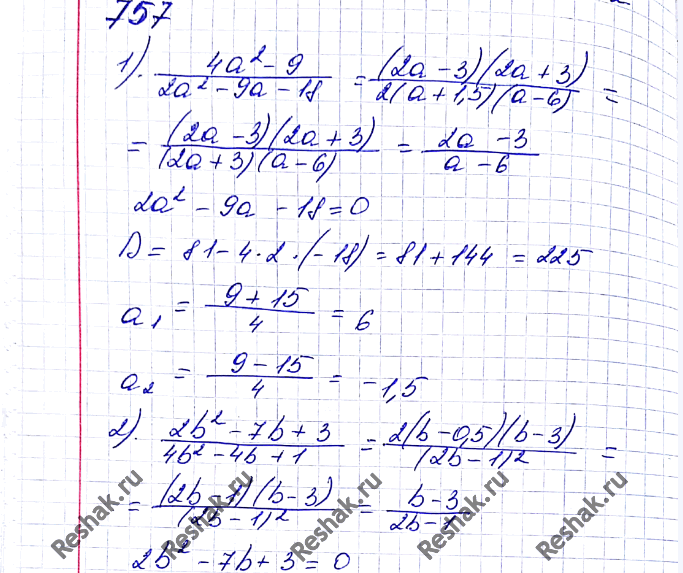 757
1). 4a² - 9 / 2a² - 9a - 18 = (2a - 3)(2a + 3) / 2(a + 1,5)(a - 6) =
= (2a - 3)(2a + 3) / (2a + 3)(a - 6) = 2a - 3 / a - 6
2a² - 9a - 18 = 0
D = 81 - 4 · 2 · (-18) = 81 + 144 = 225
a₁ = 9 + 15 / 4 = 6
a₂ = 9 - 15 / 4 = -1,5
2). 2b² - 7b + 3 / 4b² - 4b + 1 = 2(b - 0,5)(b - 3) / (2b - 1)² =
= (2b - 1)(b - 3) / (2b - 1)² = b - 3 / 2b - 1
2b² - 7b + 3 = 0
Reshak.ru
Reshak.ru
Reshak.ru
Reshak.ru
Reshak.ru